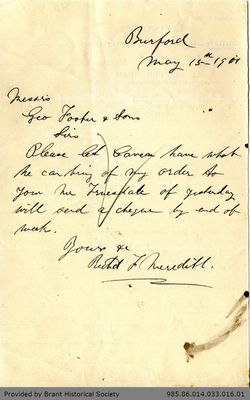 Burford
May 15th 1901
Messrs
Geo Foster & Sons
Sirs
Please let have what
he can bring of my order to
your Mr Truesdale of yesterday
will send a cheque by end of
week.
Yours &c
Richd F Meredith.
Provided by Brant Historical Society 985.86.014.033.016.01